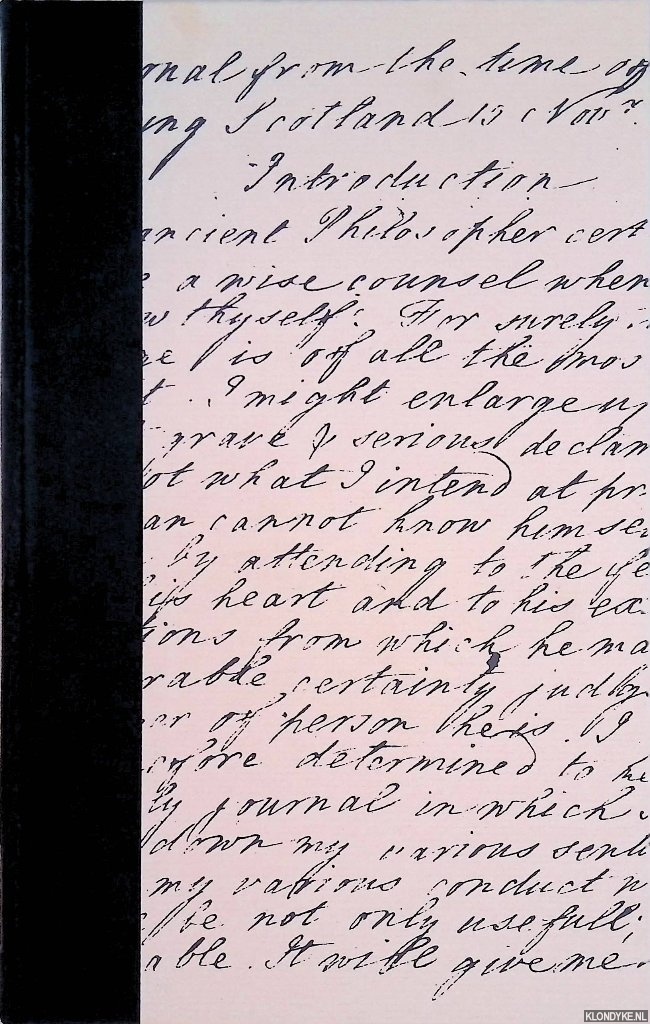 onal from the time of
ing Scotland 15 Novr.
Introduction
ancient Philosopher cert
e a wise counsel when
w thyself! For surely
ge is of all the mos
t. I might enlarge up
grave & serious declam
ot what I intend at pr
an cannot know himse
by attending to the fe
his heart and to his ex
tions from which he ma
rable certainty judg
er of person he is. I
efore determined to ke
ly journal in which
down my various senti
my various conduct w
be not only usefull;
able. It will give me
KLONDYKE.NL